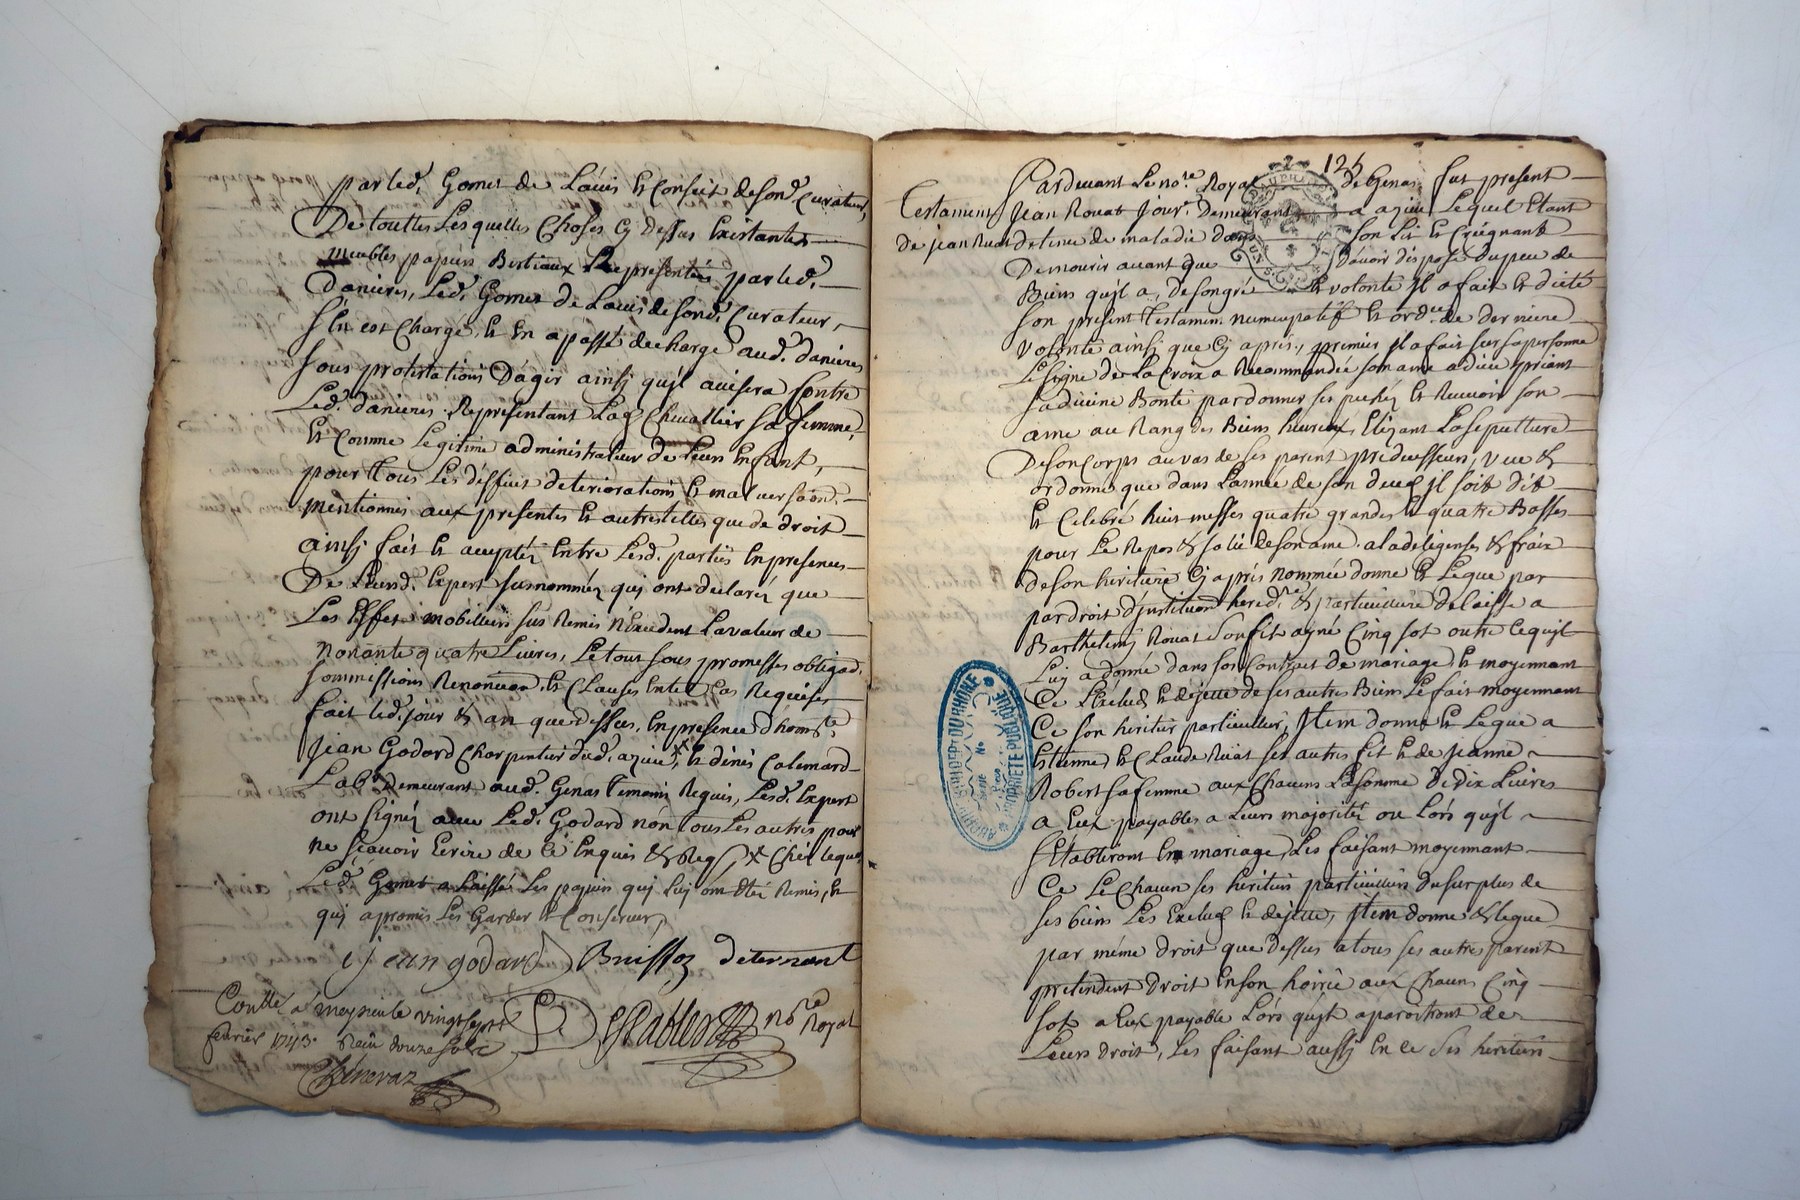 par led. Gomet de L'avis & conseit de sond. Curateur,
De touttes Lesquelles Choses Cy dessus Existantes
meubles papiers Bestiaux Representés par led.
Danieres, Led. Gomet de L'avis de sond. Curateur,
s'En est Chargé, & En a passé decharge aud. danieres
sous protestations D'agir ainsy qu'jl avisera Contre
Led. danieres Representant La Chevallier sa femme,
Et Comme Legitime administrateur de Leurs Enfant,
pour tous Les deffuit deteriorations & malversaōns
mentionnés aux presentes & autres telles que de droit
ainsy fait & accepté Entre Lesd. parties En presences
De Leursd. Expert susnommés quj ont declaré que
Les Effets mobilliers sus Remis n'Excedent La valeur de
nonante quatre Livres, Le tout sous promesses obligad.
sommissions Renonciaōn, & Clauses Entel Cas Requises
fait led. jour & an que dessus, En presence d'honste.
jean Godard Charpentier dud. azieu, x & denis Calemard
Lab. Demeurant aud. Genas temoins Requis, Lesd. Expert
ont signé avec Led. Godard non tous Les autres pour
ne sçavoir Ecrire de Ce Enquis & Req. x Chés lequel
Led. Gomet a Laissé Les papiers quj luj ont Eté Remis, &
quj a promis Les Garder & Conserver,
jean godard Buisson deternant
Contlé. a meysieu le vingt sept
fevrier 1743. Reçu douze sols
Chenevaz
DesRables nore. Royal
125
Testament
de jean Ruat
Pardevant Le nore. Royal de Genas fut present
Jean Rouat Jourr. Demeurant a azieu Lequel Etant
detenu de maladie dans son Lit & Creignant
De mourir avant que D'avoir disposé du peu de
Biens qu'jl a, de son gré & volonté jl a fait & dicté
son present Testament nuncupatif & ordce. de derniere
volonté ainsj que Cy aprés, premier jl a fait sur sa personne
Le signe de La Croix a Recommandée son ame a dieu priant
sa divine Bonté pardonner ses pechés & Recevoir son
ame au Rang des Biens heureux, Elizant La sepulture
De son Corps au vas de ses parent predecesseurs, veut &
ordonne que dans L'année de son decés jl soit dit
& Celebré huit messes quatre grandes & quatre Basses
pour Le Repos & salut de son ame a la depenses & fraix
de son heritiere Cy aprés nommée donne & Legue par
par droit d'jnstitution heredre. & particulliere delaisse a
Barthelemj Rouat son fit ayné Cinq sot outre Ce qu'jl
Luj a donné dans son Contract de mariage & moyennant
Ce L'exclud & dejette de ses autres Biens Le fait moyennant
Ce son heritier particullier, jtem donne & Legue a
Etienne & Claude Ruat ses autres fit & de jeanne
Robert sa femme aux Chacuns La somme de dix Livres
a Eux payables a Leurs majorité ou Lors qu'jl
s'Etabliront En mariage, Les faisant moyennant
Ce Le Chacun ses heritiers particulliers du surplus de
ses biens Les Exclud & dejette, jtem donne & legue
par même droit que dessus a tous ses autres parent
pretendent droit En son hoirie aux Chacuns Cinq
sot a Eux payable Lors qu'jl aparoitront de
Leurs droit, Les faisant aussj En Ce ses heritiers
ARCHIVES DEPt DU RHÔNE
PROPRIÉTÉ PUBLIQUE